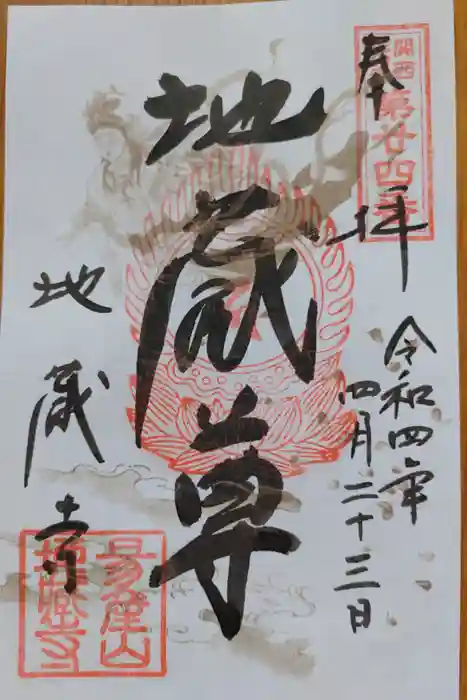 奉拝
関西第廿四番
令和四年
四月二十三日
地蔵尊
地蔵寺
多津山
地蔵寺